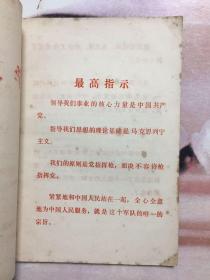 最高指示
领导我们事业的核心力量是中国共产
党。
指导我们思想的理论基础是马克思列宁
主义。
我们的原则是党指挥枪，而决不容许枪
指挥党。
紧紧地和中国人民站在一起，全心全意
地为中国人民服务，就是这个军队的唯一的
宗旨。